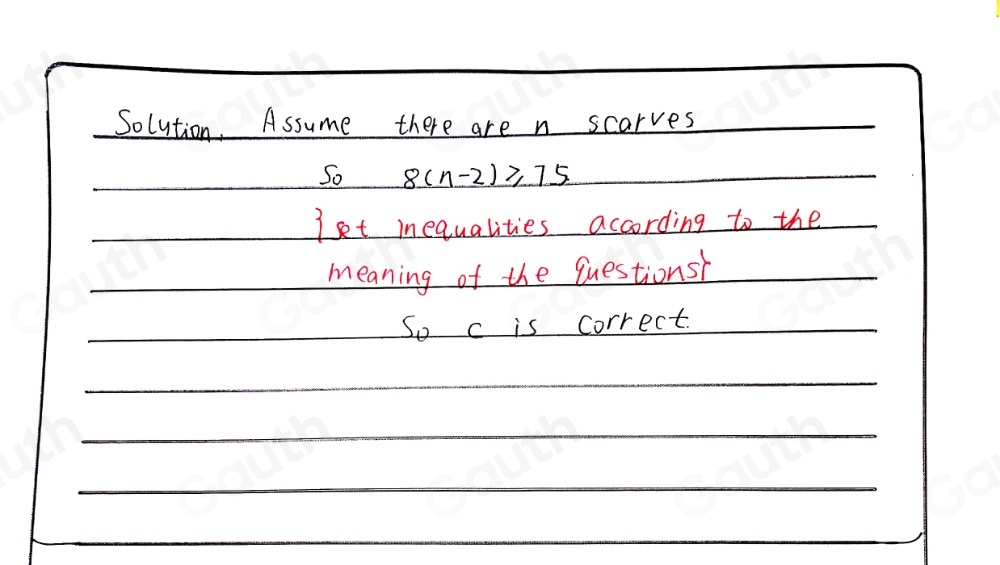 Solution, Assume there are n scarves
So 8(n-2)≥75
}set inequalities according to the
meaning of the questions}
So c is correct.
Gauth